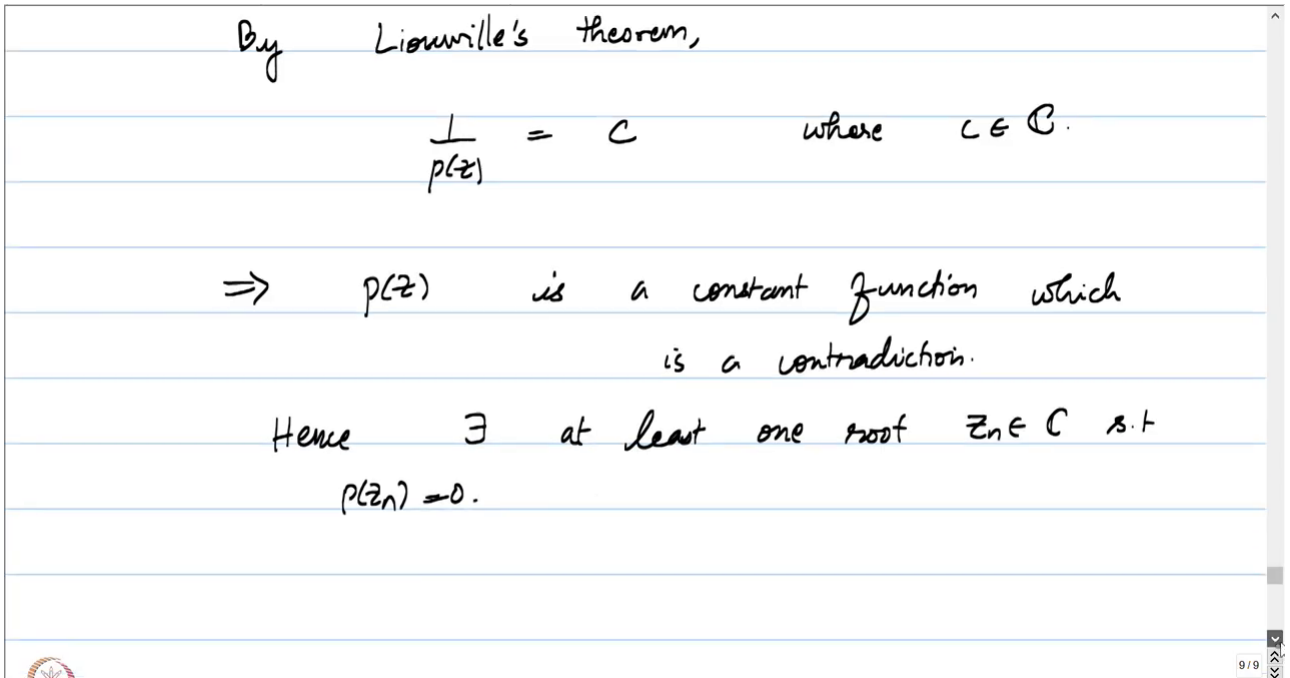 By Liouville's theorem,
1/p(z) = c where c ∈ ℂ.
⇒ p(z) is a constant function which
is a contradiction.
Hence ∃ at least one root zn ∈ C s.t
p(zn) = 0.
9 / 9